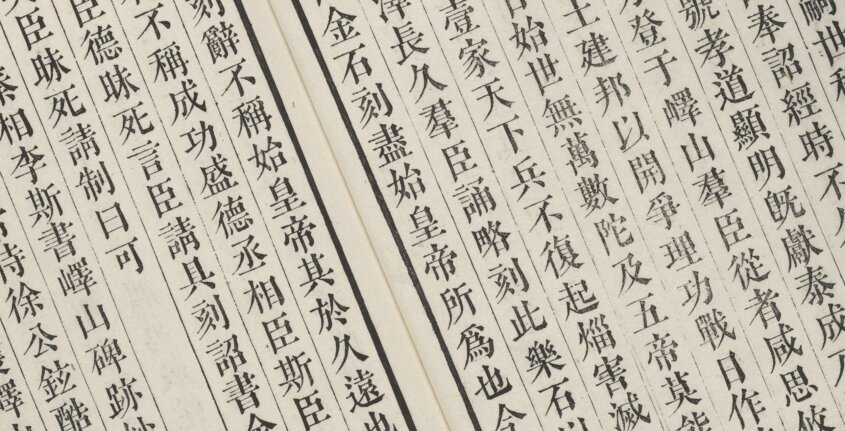 嗣世
奉詔經時不
號孝道顯明旣獻泰成乃
登于嶧山羣臣從者咸思攸
土建邦以開爭理功戰日作
古始世無萬數陀及五帝莫能
壹家天下兵不復起害滅
澤長久羣臣誦略刻此樂石
金石刻盡始皇帝所爲也今
刻辭不稱始皇帝其於久遠也
不稱成功盛德丞相臣斯臣
臣德昧死言臣請具刻詔書金
臣昧死請制曰可
秦相李斯書嶧山碑跡妙
時徐公鉉酷
嶧